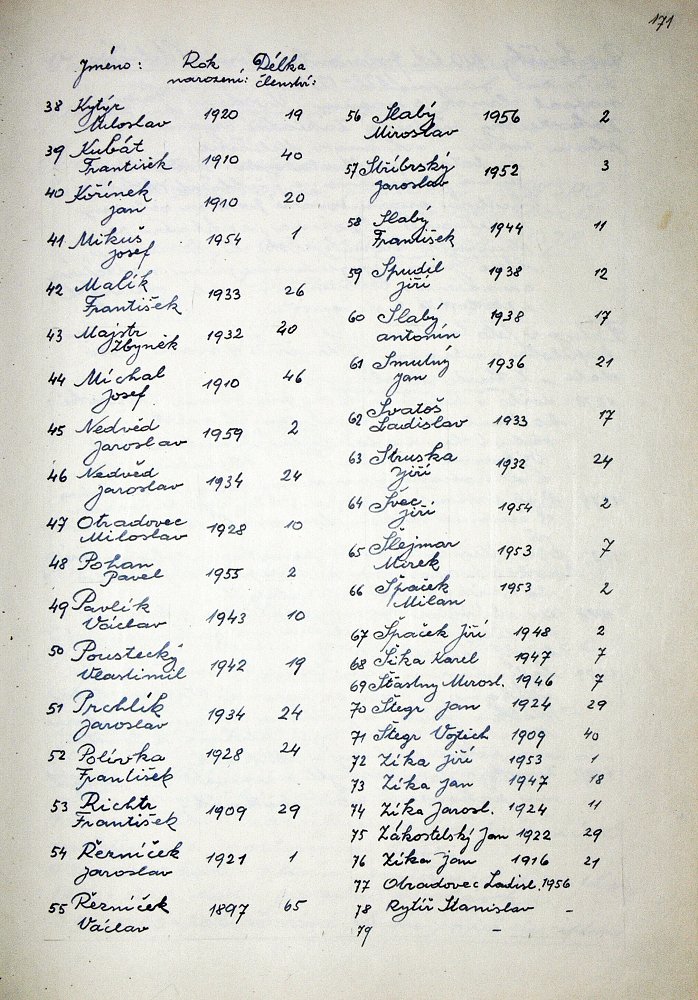 171
Jméno: Rok narození: Délka členství:
38 Kytýr 1920 19
Miloslav
39 Kubát 1910 40
František
40 Kořínek 1910 20
Jan
41 Mikuš 1954 1
Josef
42 Malík 1933 26
František
43 Majstr 1932 20
Zbyněk
44 Míchal 1910 46
Josef
45 Nedvěd 1959 2
Jaroslav
46 Nedvěd 1934 24
Jaroslav
47 Otradovec 1928 10
Miloslav
48 Pohan 1955 2
Pavel
49 Pavlík 1943 10
Václav
50 Poustecký 1942 19
Vlastimil
51 Prchlík 1934 24
Jaroslav
52 Polívka 1928 24
František
53 Richtr 1909 29
František
54 Řezníček 1921 1
Jaroslav
55 Řezníček 1897 65
Václav
56 Slabý 1956 2
Miroslav
57 Stříbrský 1952 3
Jaroslav
58 Slabý 1944 11
František
59 Spudil 1938 12
Jiří
60 Slabý 1938 17
Antonín
61 Smutný 1936 21
Jan
62 Svatoš 1933 17
Ladislav
63 Struska 1932 24
Jiří
64 Švec 1954 2
Jiří
65 Šlejmar 1953 7
Mirek
66 Špaček 1953 2
Milan
67 Špaček Jiří 1948 2
68 Šika Karel 1947 7
69 Šťastný Mirosl. 1946 7
70 Štegr Jan 1924 29
71 Štegr Vojtěch 1909 40
72 Zíka Jiří 1953 1
73 Zíka Jan 1947 18
74 Zíka Jarosl. 1924 11
75 Zákostelský Jan 1922 29
76 Zíka Jan 1916 21
77 Otradovec Ladisl. 1956
78 Rytíř Stanislav -
79 -